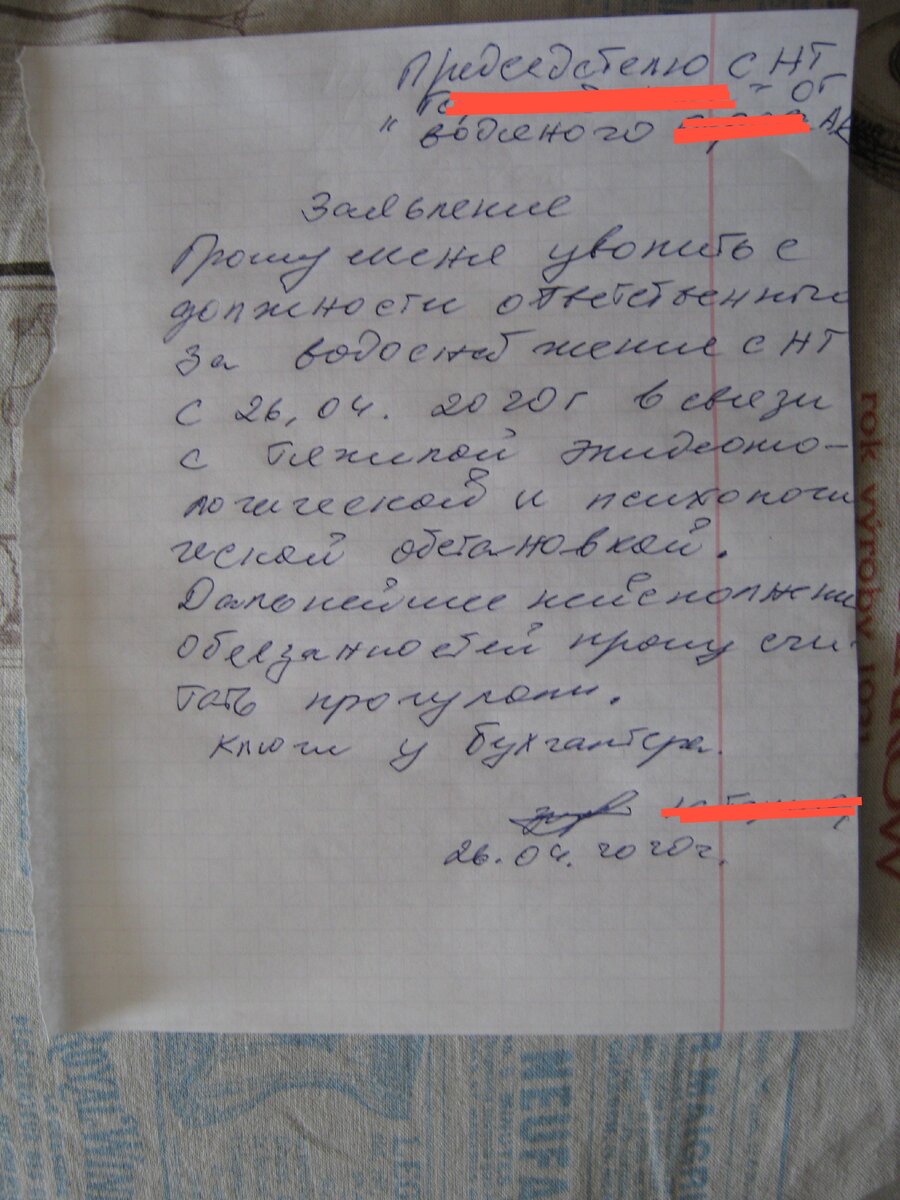 Председателю СНТ
" от
" водяного
Заявление
Прошу меня уволить с
должности ответственный
За водоснабжение СНТ
с 26,04. 2020г в связи
с тяжилой эпидеомо-
логической и психологи
ческой обстановкой.
Дальнейшее неисполжени
обязанностей прошу счи-
тать прогулами.
Ключи у бухгалтера.
26.04.2020г.
rok výroby 1921
NEUFA